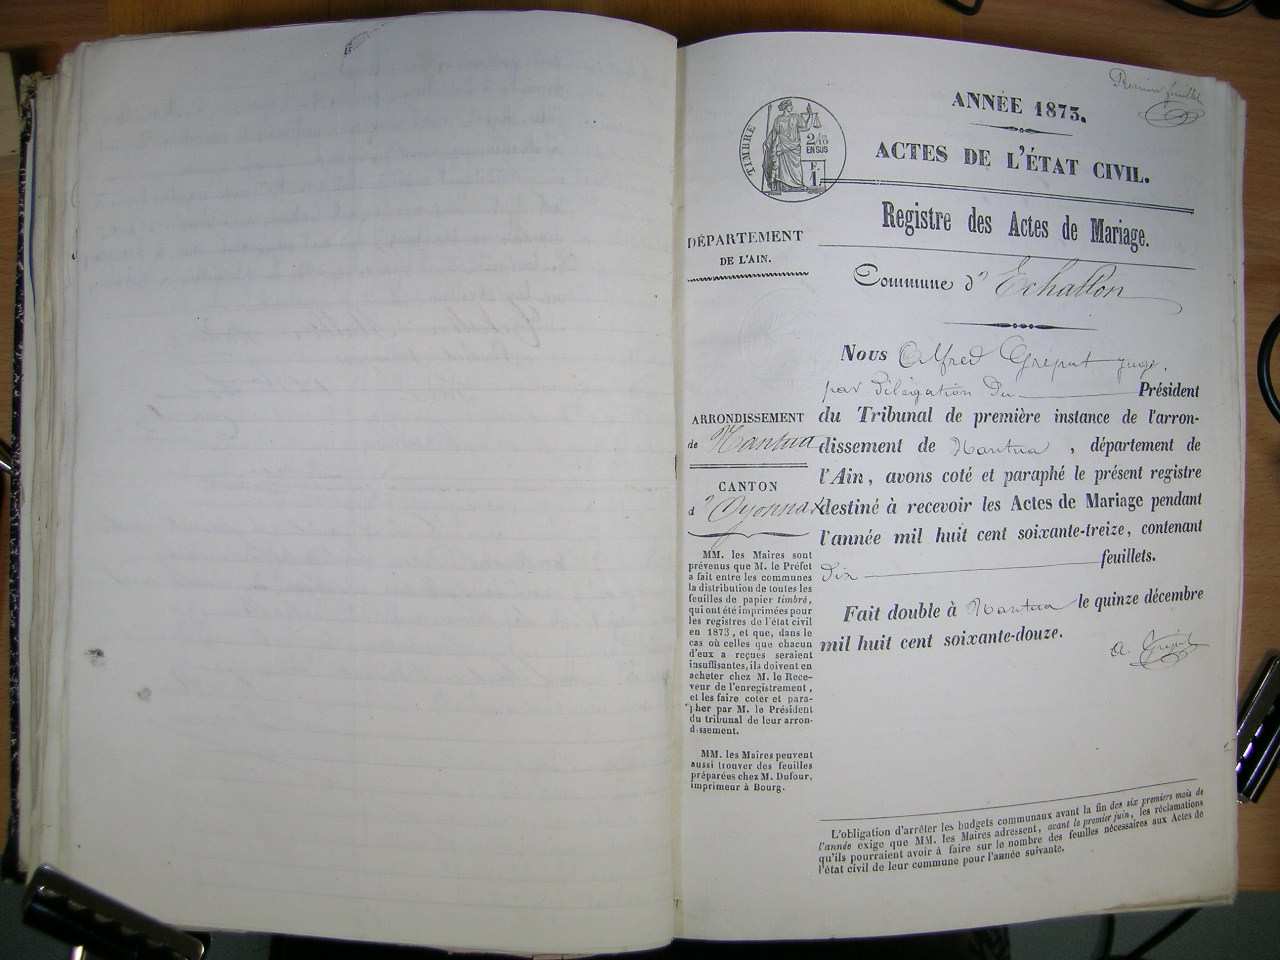 Premier feuillet
ANNÉE 1873.
ACTES DE L'ÉTAT CIVIL.
TIMBRE
2/10
EN SUS
F.
1
Registre des Actes de Mariage.
DÉPARTEMENT
DE L'AIN.
Commune d'Echallon
Nous Alfred Grépat juge,
par délégation du Président
du Tribunal de première instance de l'arron-
dissement de Nantua, département de
l'Ain, avons coté et paraphé le présent registre
destiné à recevoir les Actes de Mariage pendant
l'année mil huit cent soixante-treize, contenant
dix feuillets.
Fait double à Nantua le quinze décembre
mil huit cent soixante-douze.
ARRONDISSEMENT
de Nantua
CANTON
d'Oyonnax
MM. les Maires sont
prévenus que M. le Préfet
a fait entre les communes
la distribution de toutes les
feuilles de papier timbré,
qui ont été imprimées pour
les registres de l'état civil
en 1873, et que, dans le
cas où celles que chacun
d'eux a reçues seraient
insuffisantes, ils doivent en
acheter chez M. le Rece-
veur de l'enregistrement,
et les faire coter et para-
pher par M. le Président
du tribunal de leur arron-
dissement.
MM. les Maires peuvent
aussi trouver des feuilles
préparées chez M. Dufour,
imprimeur à Bourg.
L'obligation d'arrêter les budgets communaux avant la fin des six premiers mois de
l'année exige que MM. les Maires adressent, avant le premier juin, les réclamations
qu'ils pourraient avoir à faire sur le nombre des feuilles nécessaires aux Actes de
l'état civil de leur commune pour l'année suivante.